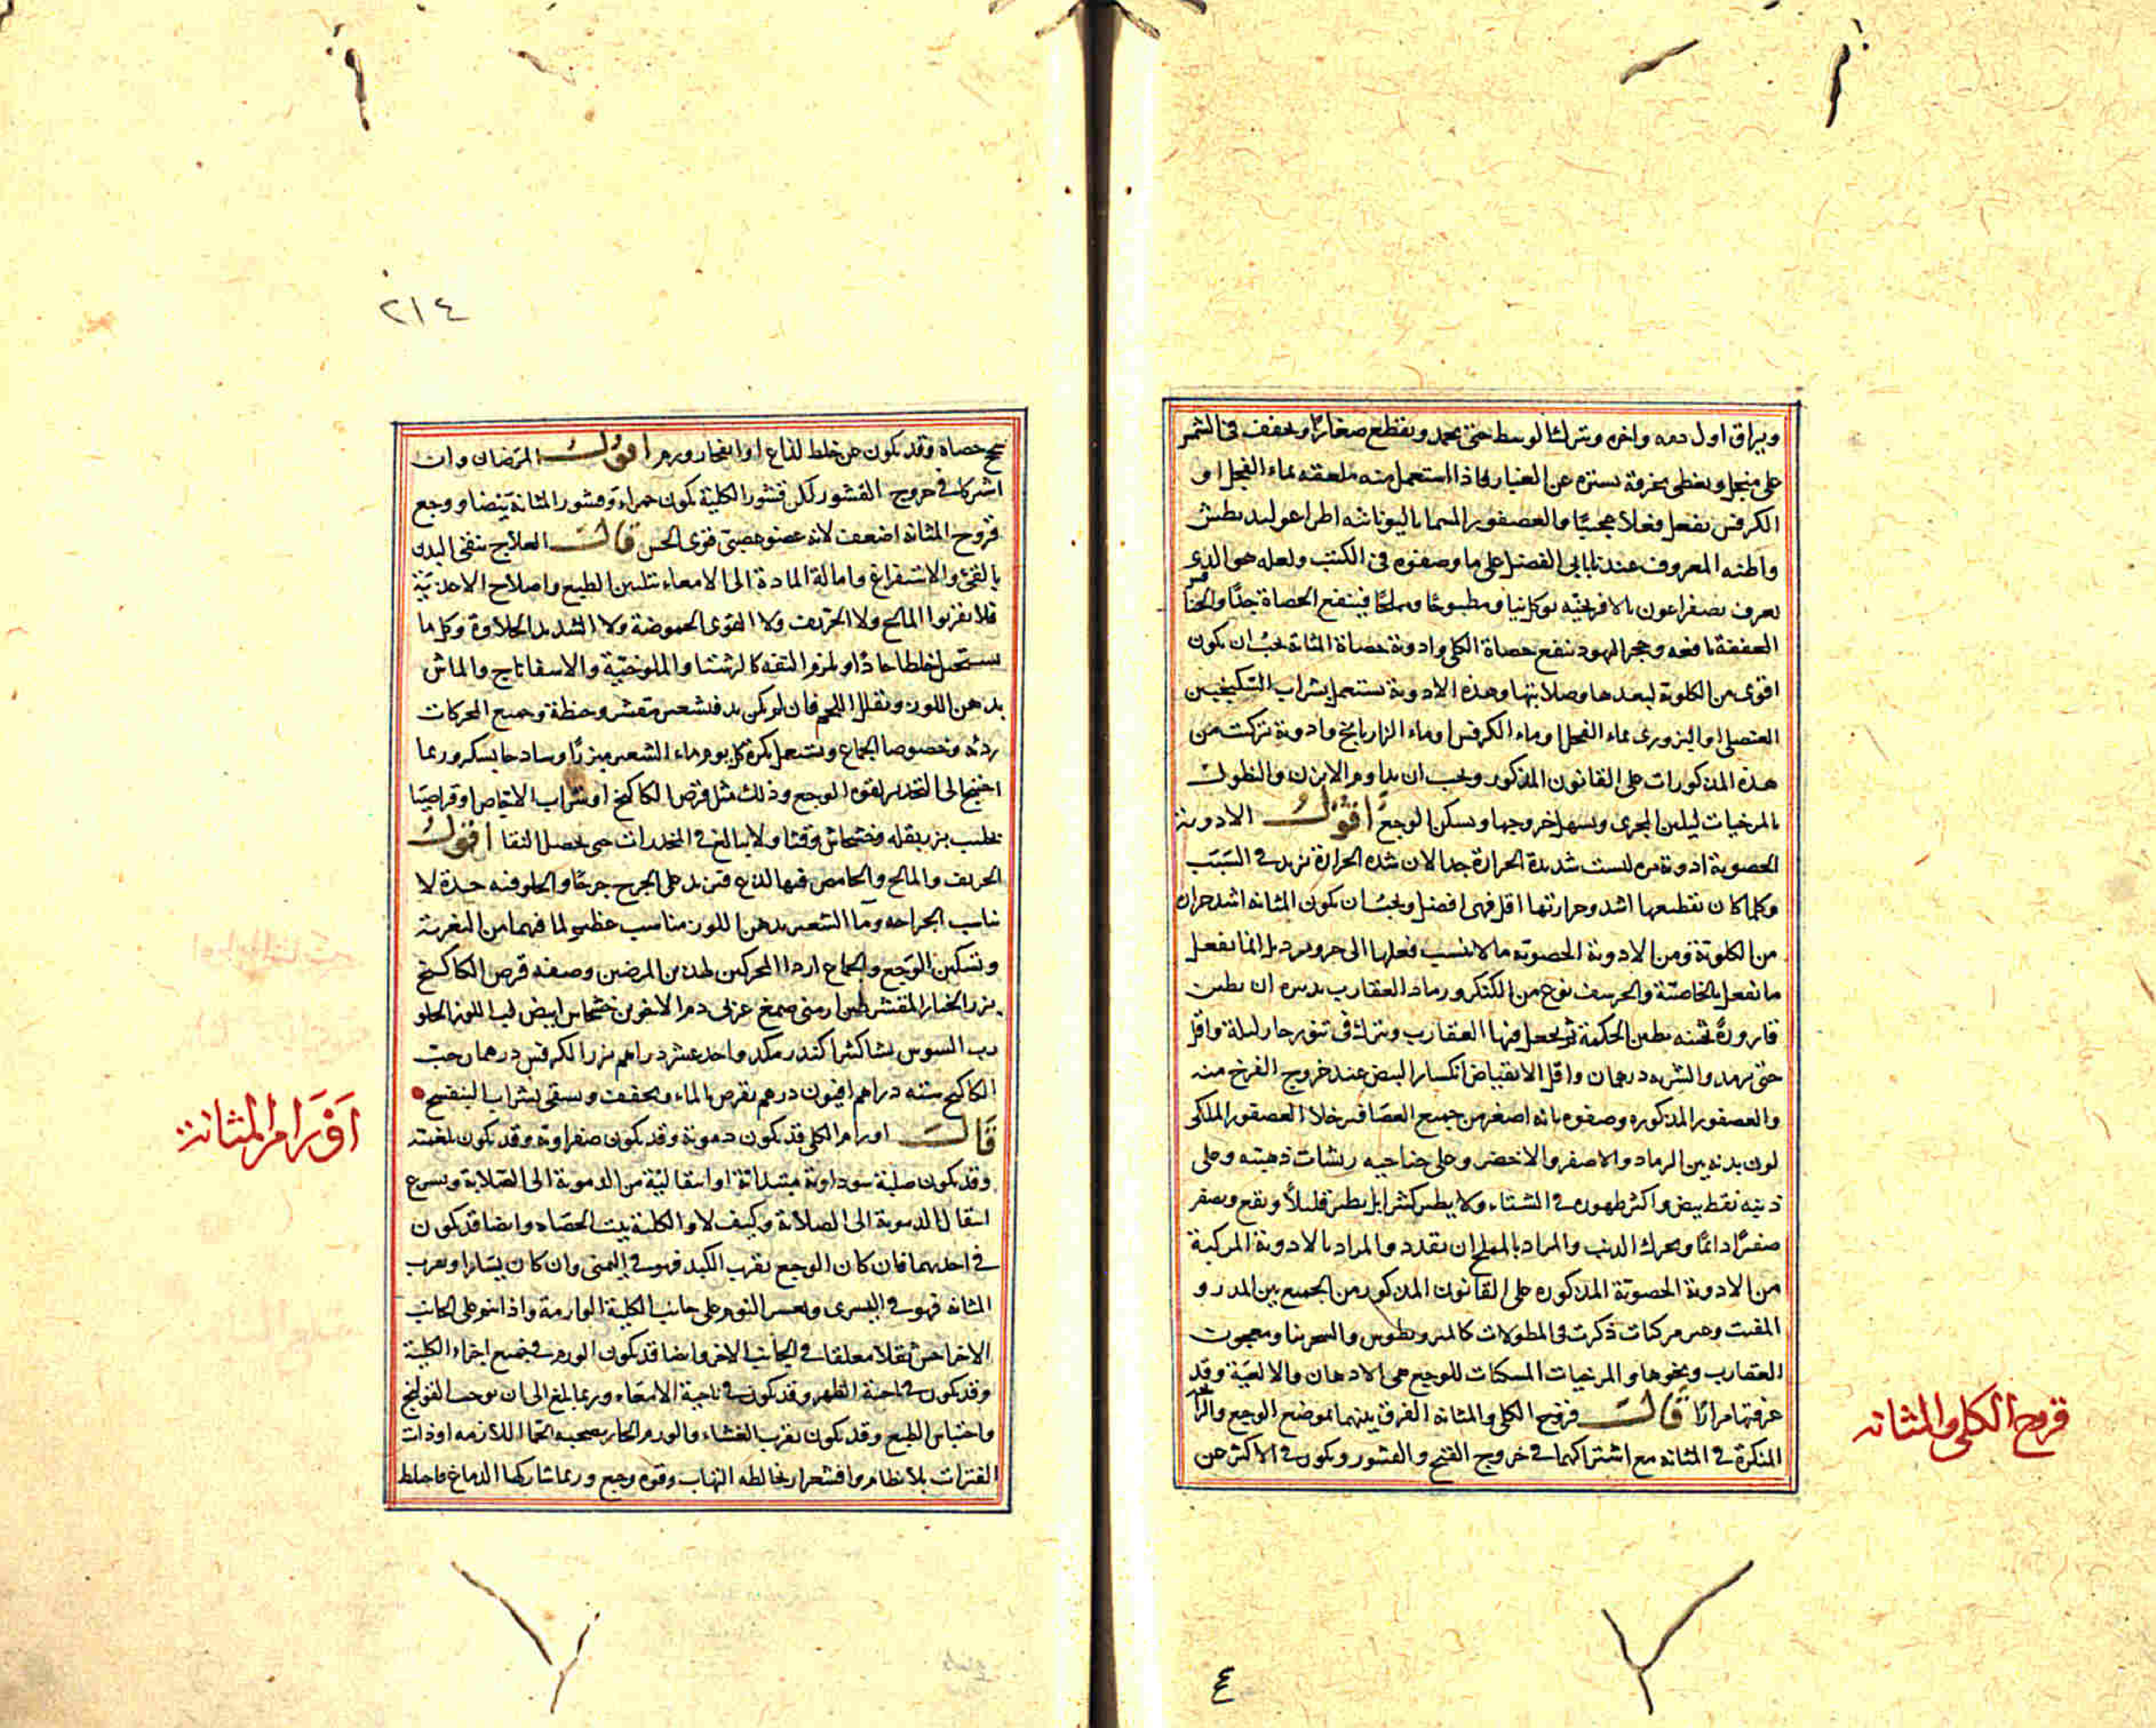 ويراق اول دمه واخره ويترك الوسط حتى يجمد ويقطع صغارا ويجفف في الشمس
على منخل ويغطى بخرقة تستره عن الغبار فاذا استعمل منه ملعقة بماء الفجل او
الكرفس يفعل فعلا عجيبا والعصفور المسما باليونانية اطراغوليديطس
واظنه المعروف عندنا بابي الفصل على ما وصفوه في الكتب ولعله هو الذي
يعرف بصفراغون بالافرنجية يوكل نيا ومطبوخا ومملحا فينفع الحصاة جدا والخنا
العفنة نافعه وحجر اليهود ينفع حصاة الكلى وادوية حصاة المثانة يجب ان يكون
اقوى من الكلوية لبعدها وصلابتها وهذه الادوية يستعمل بشراب السكنجبين
العنصلى او البزورى بماء الفجل او ماء الكرفس او ماء الرازيانج وادوية تركبت من
هذه المذكورات على القانون المذكور ويجب ان يداوم الابزن والنطول
بالمرخيات ليلين المجرى ويسهل خروجها ويسكن الوجع اقول الادوية
الحصوية ادوية ليست شديدة الحرارة جدا لان شدة الحرارة تزيد في السبب
وكلما كان تقطيعها اشد وحرارتها اقل فهى افضل ويجب ان يكون المثانه اشد حراره
من الكلوية ومن الادوية الحصوية ما لا ينسب فعلها الى حر وبرد بل انما يفعل
ما يفعل بالخاصية والحرشف نوع من الكنكر ورماد العقارب تدبيره ان يطين
قارورة ثخينه بطين الحكمة ثم يجعل فيها العقارب ويترك في تنور حار ليلة واقل
حتى ترمد والشربه درهمان واقل الانقباض انكسار البيض عند خروج الفرخ منه
والعصفور المذكوره وصفوه بانه اصغر من جميع العصافير خلا العصفور الملكى
لون بدنه بين الرماد والاصفر والاخضر وعلى جناحيه ريشات ذهبيه وعلى
ذنبه نقط بيض واكثر ظهوره في الشتاء ولا يطير كثيرا بل يطير قليلا ويقع ويصفر
صفيرا دائما ويحرك الذنب والمراد بالمملح ان يقدد والمراد بالادوية المركبة
من الادوية الحصوية المذكوره على القانون المذكور من الجميع بين المدر و
المفتت وهى مركبات ذكرت في المطولات كالمثروديطوس والسجرنيا ومعجون
العقارب ونحوها والمرخيات المسكنات للوجع هى الادهان والالعبة وقد
عرفتها مرارا قال قروح الكلى والمثانه الفرق بينهما بموضع الوجع والرا
المنكرة في المثانه مع اشتراكهما في خروج القيح والقشور ويكون في الاكثر عن
قروح الكلى والمثانه
٢١٤
سحج حصاة وقد يكون عن خلط لذاع او انفجار ورم اقول المرضان وان
اشتركا في خروج القشور لكن قشور الكلية يكون حمراء وقشور المثانة بيضا ووجع
قروح المثانه اضعف لانه عضو عصبى قوى الحس قال العلاج ينقى البدن
بالقئ والاستفراغ وامالة المادة الى الامعاء بتليين الطبع واصلاح الاغذية
فلا يقربوا المالح ولا الحريف ولا القوى الحموضة ولا الشديد الحلاوة وكل ما
يستحيل خلطا حادا ويلزم التفه كالرشتا والملوخية والاسفاناج والماش
بدهن اللوز وتقلل اللحم فان لم يكن بد فشعير مقشر وحنطة وجميع الحركات
رديه وخصوصا الجماع ويستعمل بكرة كل يوم ماء الشعير مبزرا وساذجا بسكر وربما
احتيج الى التخدير لقوة الوجع وذلك مثل قرص الكاكنج او شراب الاجاص او قراصيا
بحليب بزر بقله وخشخاش وقثا ولا يبالغ في المخدرات حتى يحصل النقا اقول
الحريف والمالح والحامض فيها لذع فتزيد على الجرح جرحا والحلو فيه حدة لا
تناسب الجراحه وما الشعير بدهن اللوز مناسب عظيم لما فيهما من التغرية
وتسكين الوجع والجماع اردا المحركين لهذين المرضين وصفة قرص الكاكنج
بزر الخيار المقشر طين ارمنى صمغ عربى دم الاخوين خشخاش ابيض لب اللوز الحلو
رب السوس نشا كثيرا كندر مكد واحد عشر دراهم بزر الكرفس درهمان حب
الكاكنج ستة دراهم افيون درهم يقرص بالماء ويجفف ويسقى بشراب البنفسج
قال اورام الكلى قد يكون دموية وقد يكون صفراوية وقد يكون بلغمية
وقد يكون صلبة سوداوية مبتداة او انتقالية من الدموية الى الصلابة ويسرع
انتقال الدموية الى الصلابة وكيف لا والكلية بيت الحصاه وايضا قد يكون
في احديهما فان كان الوجع يقرب الكبد فهو في اليمنى وان كان يسارا ويقرب
المثانه فهو في اليسرى ويعسر النوم على جانب الكلية الوارمة واذا نوم على الجانب
الاخر احس ثقلا معلقا في الجانب الاخر وايضا قد يكون الورم في جميع اجزاء الكلية
وقد يكون في ناحية الظهر وقد يكون في ناحية الامعاء وربما بلغ الى ان يوجب القولنج
واحتباس الطبع وقد يكون يقرب الغشاء والورم الحار يصحبه الحمى اللازمه او ذات
الفترات بلا نظام واقشعرار يخالطه التهاب وقوة وجع وربما شاركها الدماغ فاختلط
اورام المثانة